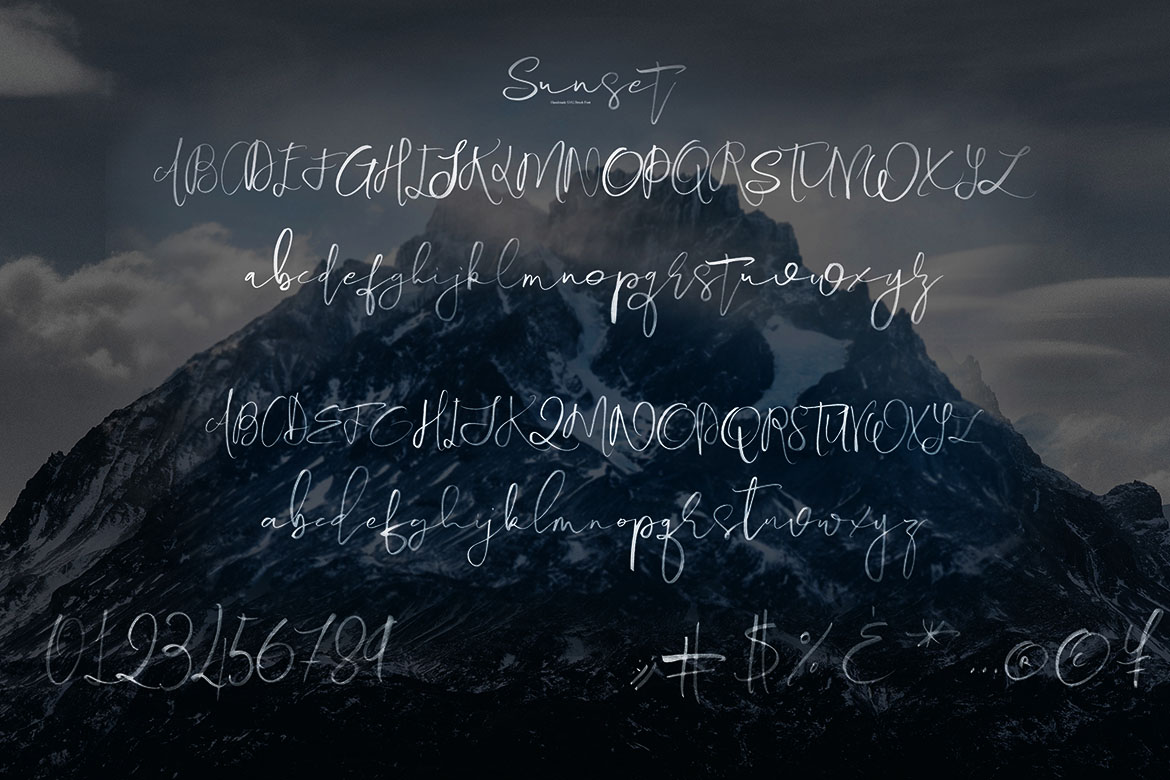 Sunset
Handmade SVG Brush Font
ABCDEFGHIJKLMNOPQRSTUVWXYZ
abcdefghijklmnopqrstuvwxyz
ABCDEFGHIJKLMNOPQRSTUVWXYZ
abcdefghijklmnopqrstuvwxyz
0123456789 " # $ % & * ... ® © ¥